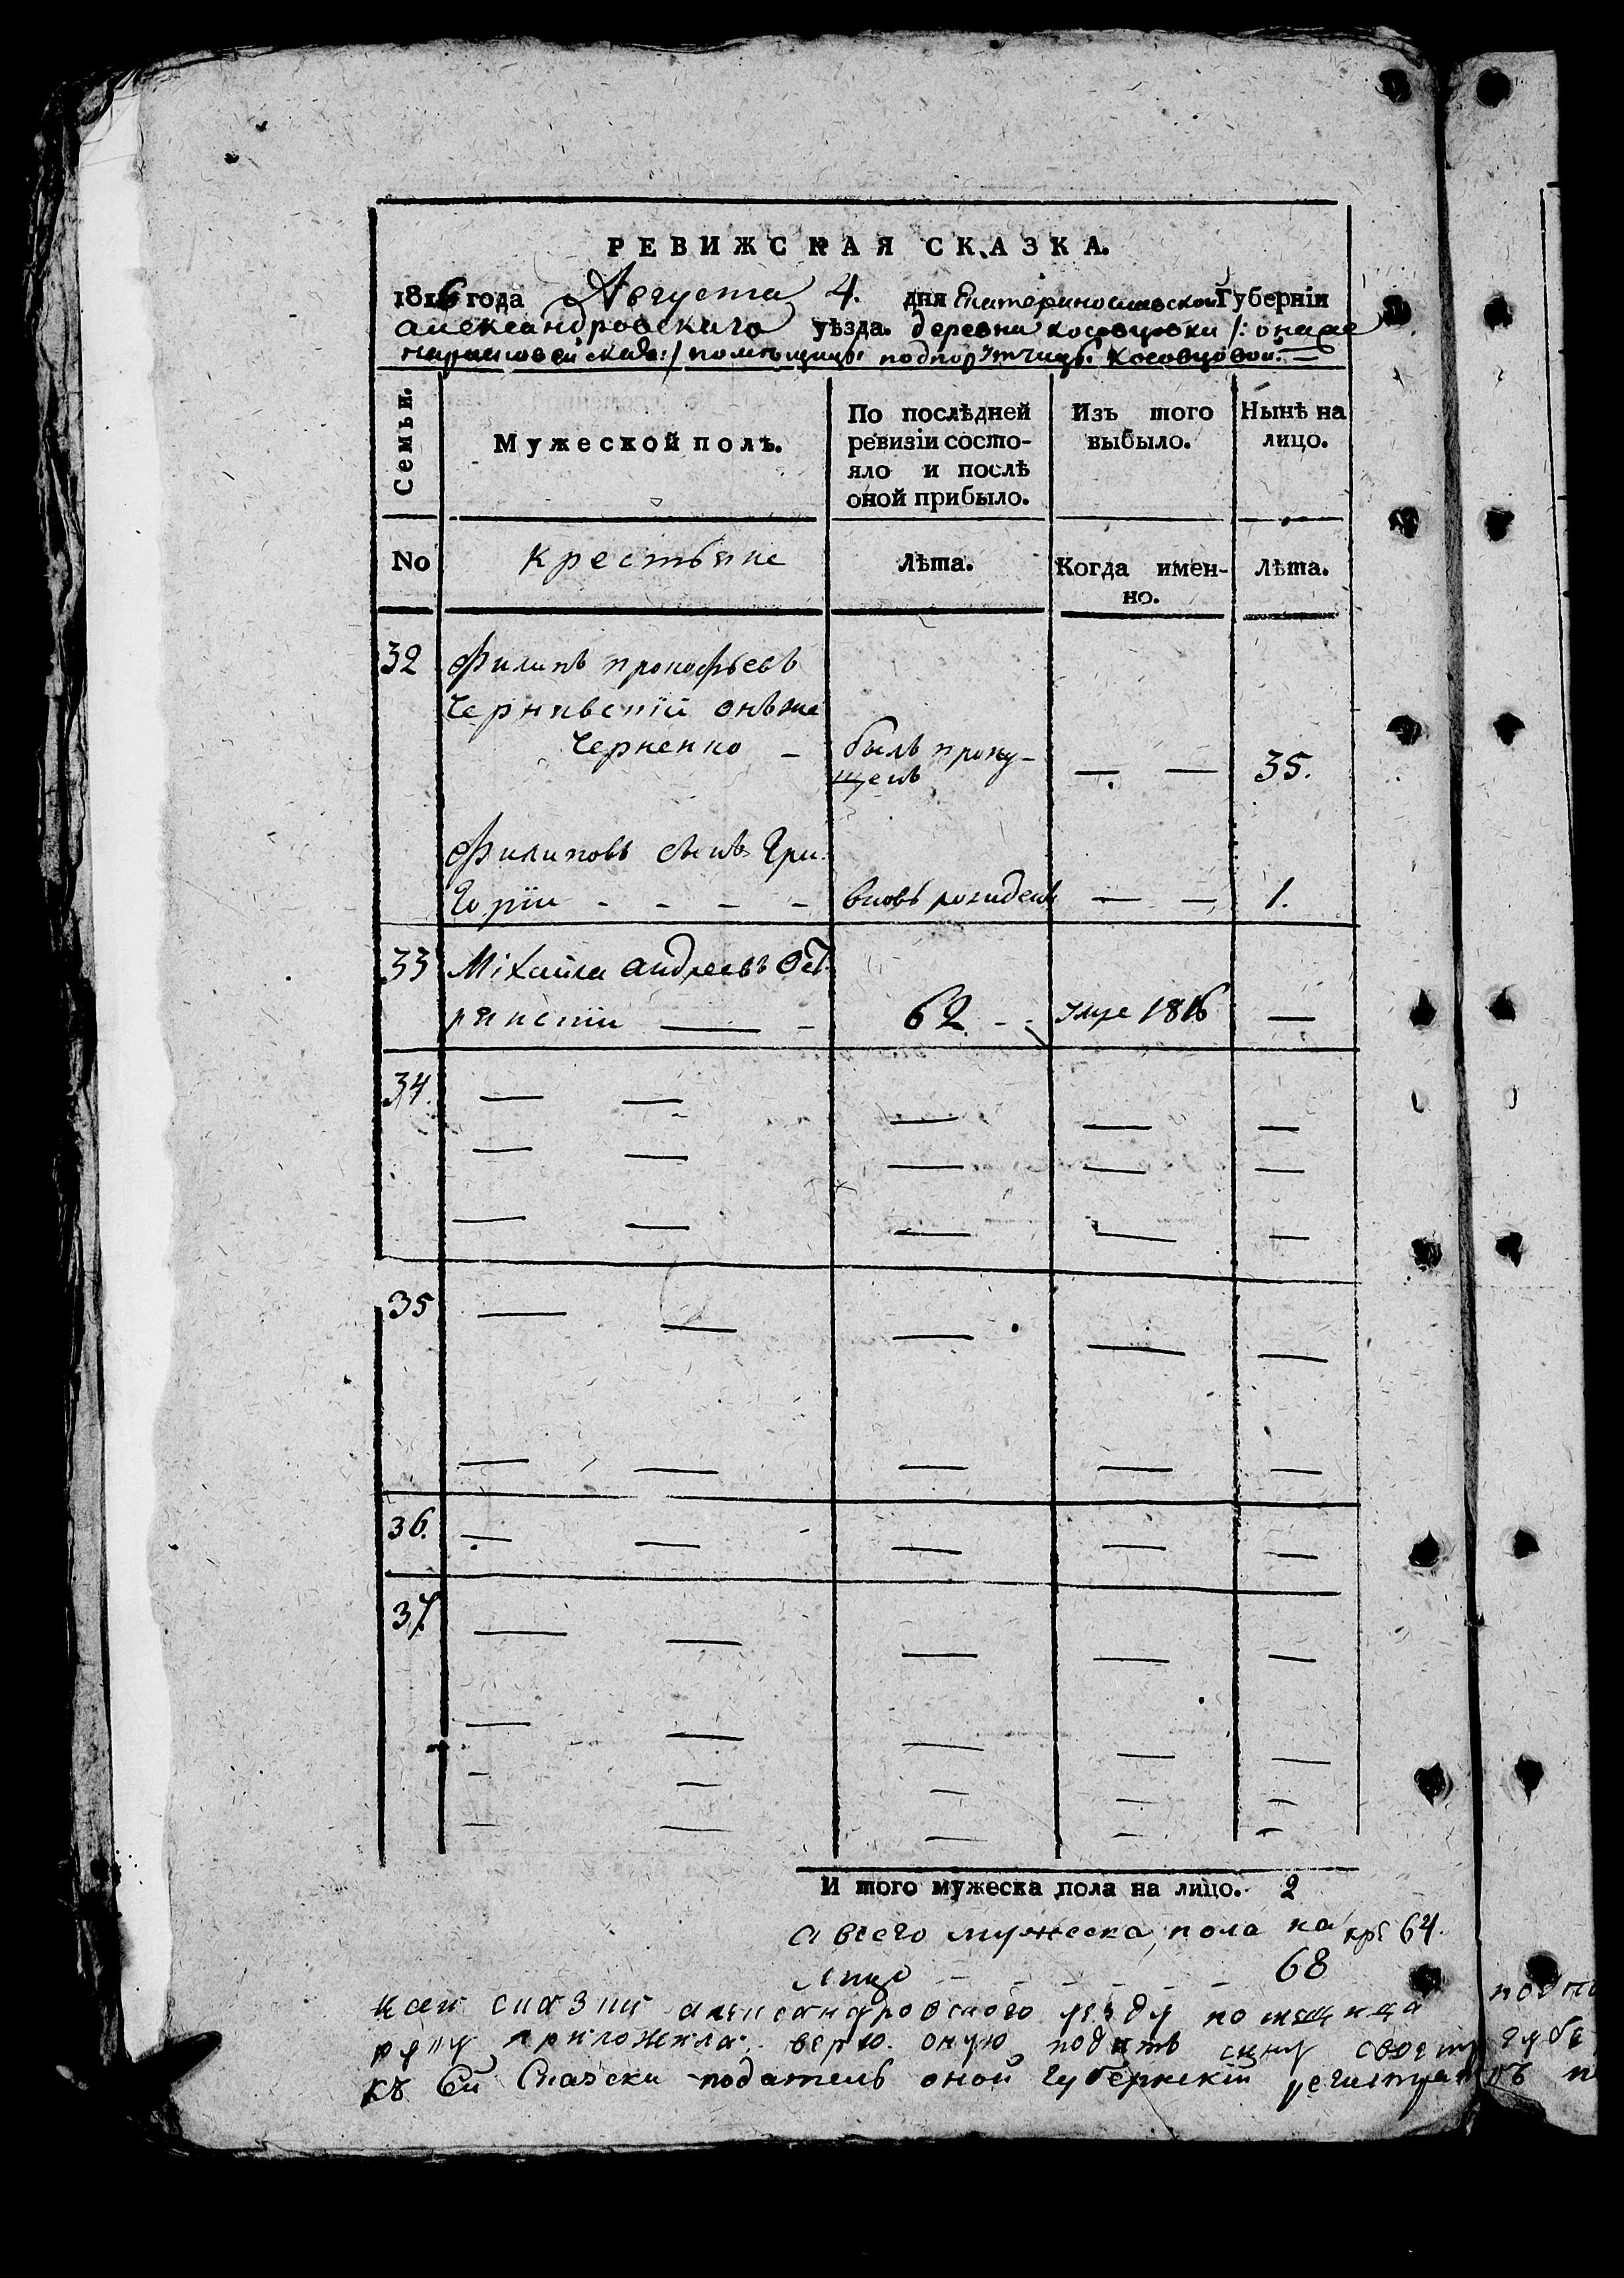 РЕВИЖСКАЯ СКАЗКА.
1816 года Августа 4. дня Екатеринославской Губерніи
александровскаго уѣзда. деревни косовцовки /: онаже
/ помѣщицы подпорутчицы Косовцовой. —
Семьи.
Мужеской полъ.
По послѣдней ревизіи состояло и послѣ оной прибыло.
Изъ того выбыло.
Нынѣ на лицо.
No
крестьяне
Лѣта.
Когда имен-
но.
Лѣта.
32 Филипъ прокофьевъ
Чернявскій онъже
Черненко – былъ пропу-
щенъ — — 35.
Филиповъ сынъ Гри
горій - - - - вновь рожденъ — — 1.
33 Міхайла андреевъ Ост
рянскій — - 62 - - умре 1816 —
34. — — — — —
— — — — —
— — — — —
35 — — — — —
— — — — —
36. — — — — —
37 — — — — —
— — — — —
— — — — —
— — — — —
И того мужеска пола на лицо. 2
а всего мужеска пола на кре 64.
лицо - - - - - - 68
сказки александровского уезду помещица подпо
руку приложила. верю оную подать сину своему губе
къ сей Сказски податель оной Губернскій регистра